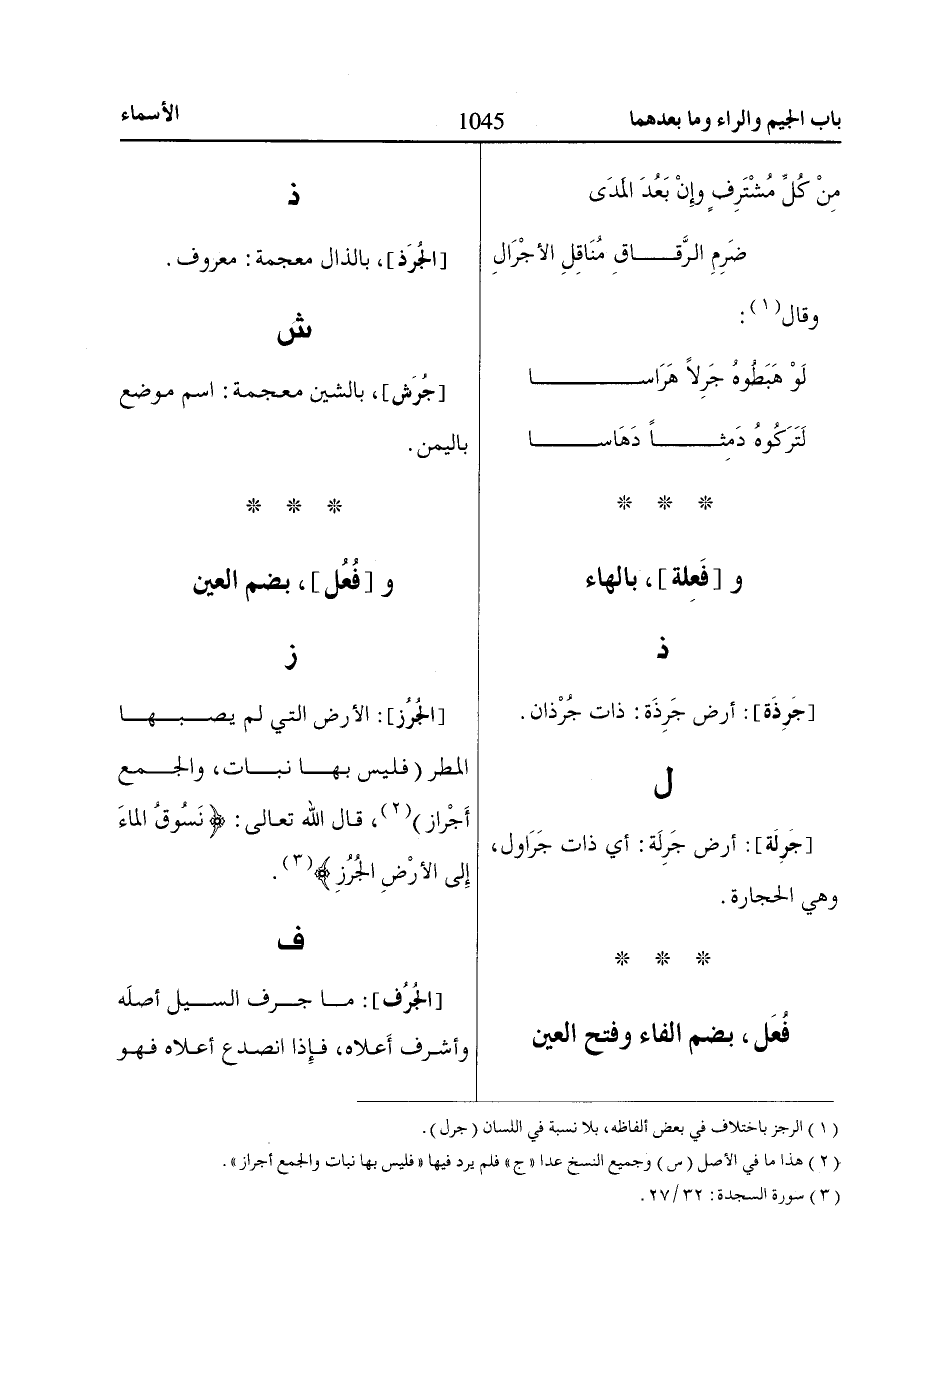 باب الجيم والراء وما بعدهما 1045 الأسماء
مِنْ كُلِّ مُشْتَرِفٍ وإِنْ بَعُدَ المَدَى
ضَرِمِ الرَّقَـــاقِ مُنَاقِلِ الأَجْرَالِ
وقال(١):
لَوْ هَبَطُوهُ جَرِلاً هَرَاســـــا
لَتَرَكُوهُ دَمِثـــاً دَهَاســـا
* * *
و [فَعِلة]، بالهاء
ذ
[جَرِذَة]: أرض جَرِذَة: ذات جُرْذان.
ل
[جَرِلَة]: أرض جَرِلَة: أي ذات جَرَاول،
وهي الحجارة.
* * *
فُعَل، بضم الفاء وفتح العين
ذ
[الجُرَذ]، بالذال معجمة: معروف.
ش
[جُرَش]، بالشين معجمة: اسم موضع
باليمن.
* * *
و [فُعُل]، بضم العين
ز
[الجُرُز]: الأرض التي لم يصبها
المطر (فليس بها نبات، والجمع
أَجْراز)(٢)، قال الله تعالى: ﴿نَسُوقُ الماءَ
إِلى الأرْضِ الجُرُزِ﴾(٣).
ف
[الجُرُف]: ما جرف السيل أصلَه
وأشرف أَعلاه، فإِذا انصدع أعلاه فهو
(١) الرجز باختلاف في بعض ألفاظه، بلا نسبة في اللسان (جرل).
(٢) هذا ما في الأصل (س) وجميع النسخ عدا «ج» فلم يرد فيها «فليس بها نبات والجمع أجراز».
(٣) سورة السجدة: ٢٧/٣٢.